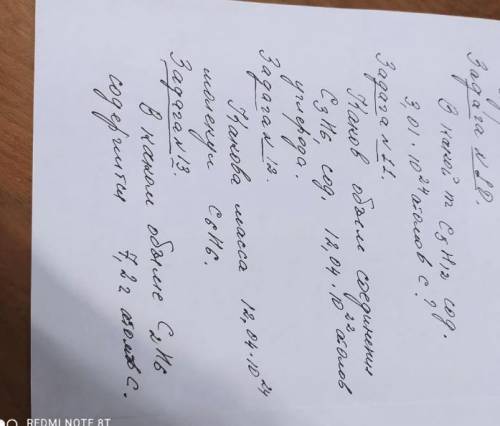 Задача № 10.
В какой m C5H12 сод.
3,01 · 10^24 атомов C?
Задача № 11.
Каков объем соединения
C3H6, сод. 12,04 · 10^22 атомов
углерода.
Задача № 12.
Какова масса 12,04 · 10^24
молекул C6H6.
Задача № 13.
В каком объёме C2H6
содержится 7,2 г атомов C.
REDMI NOTE 8T